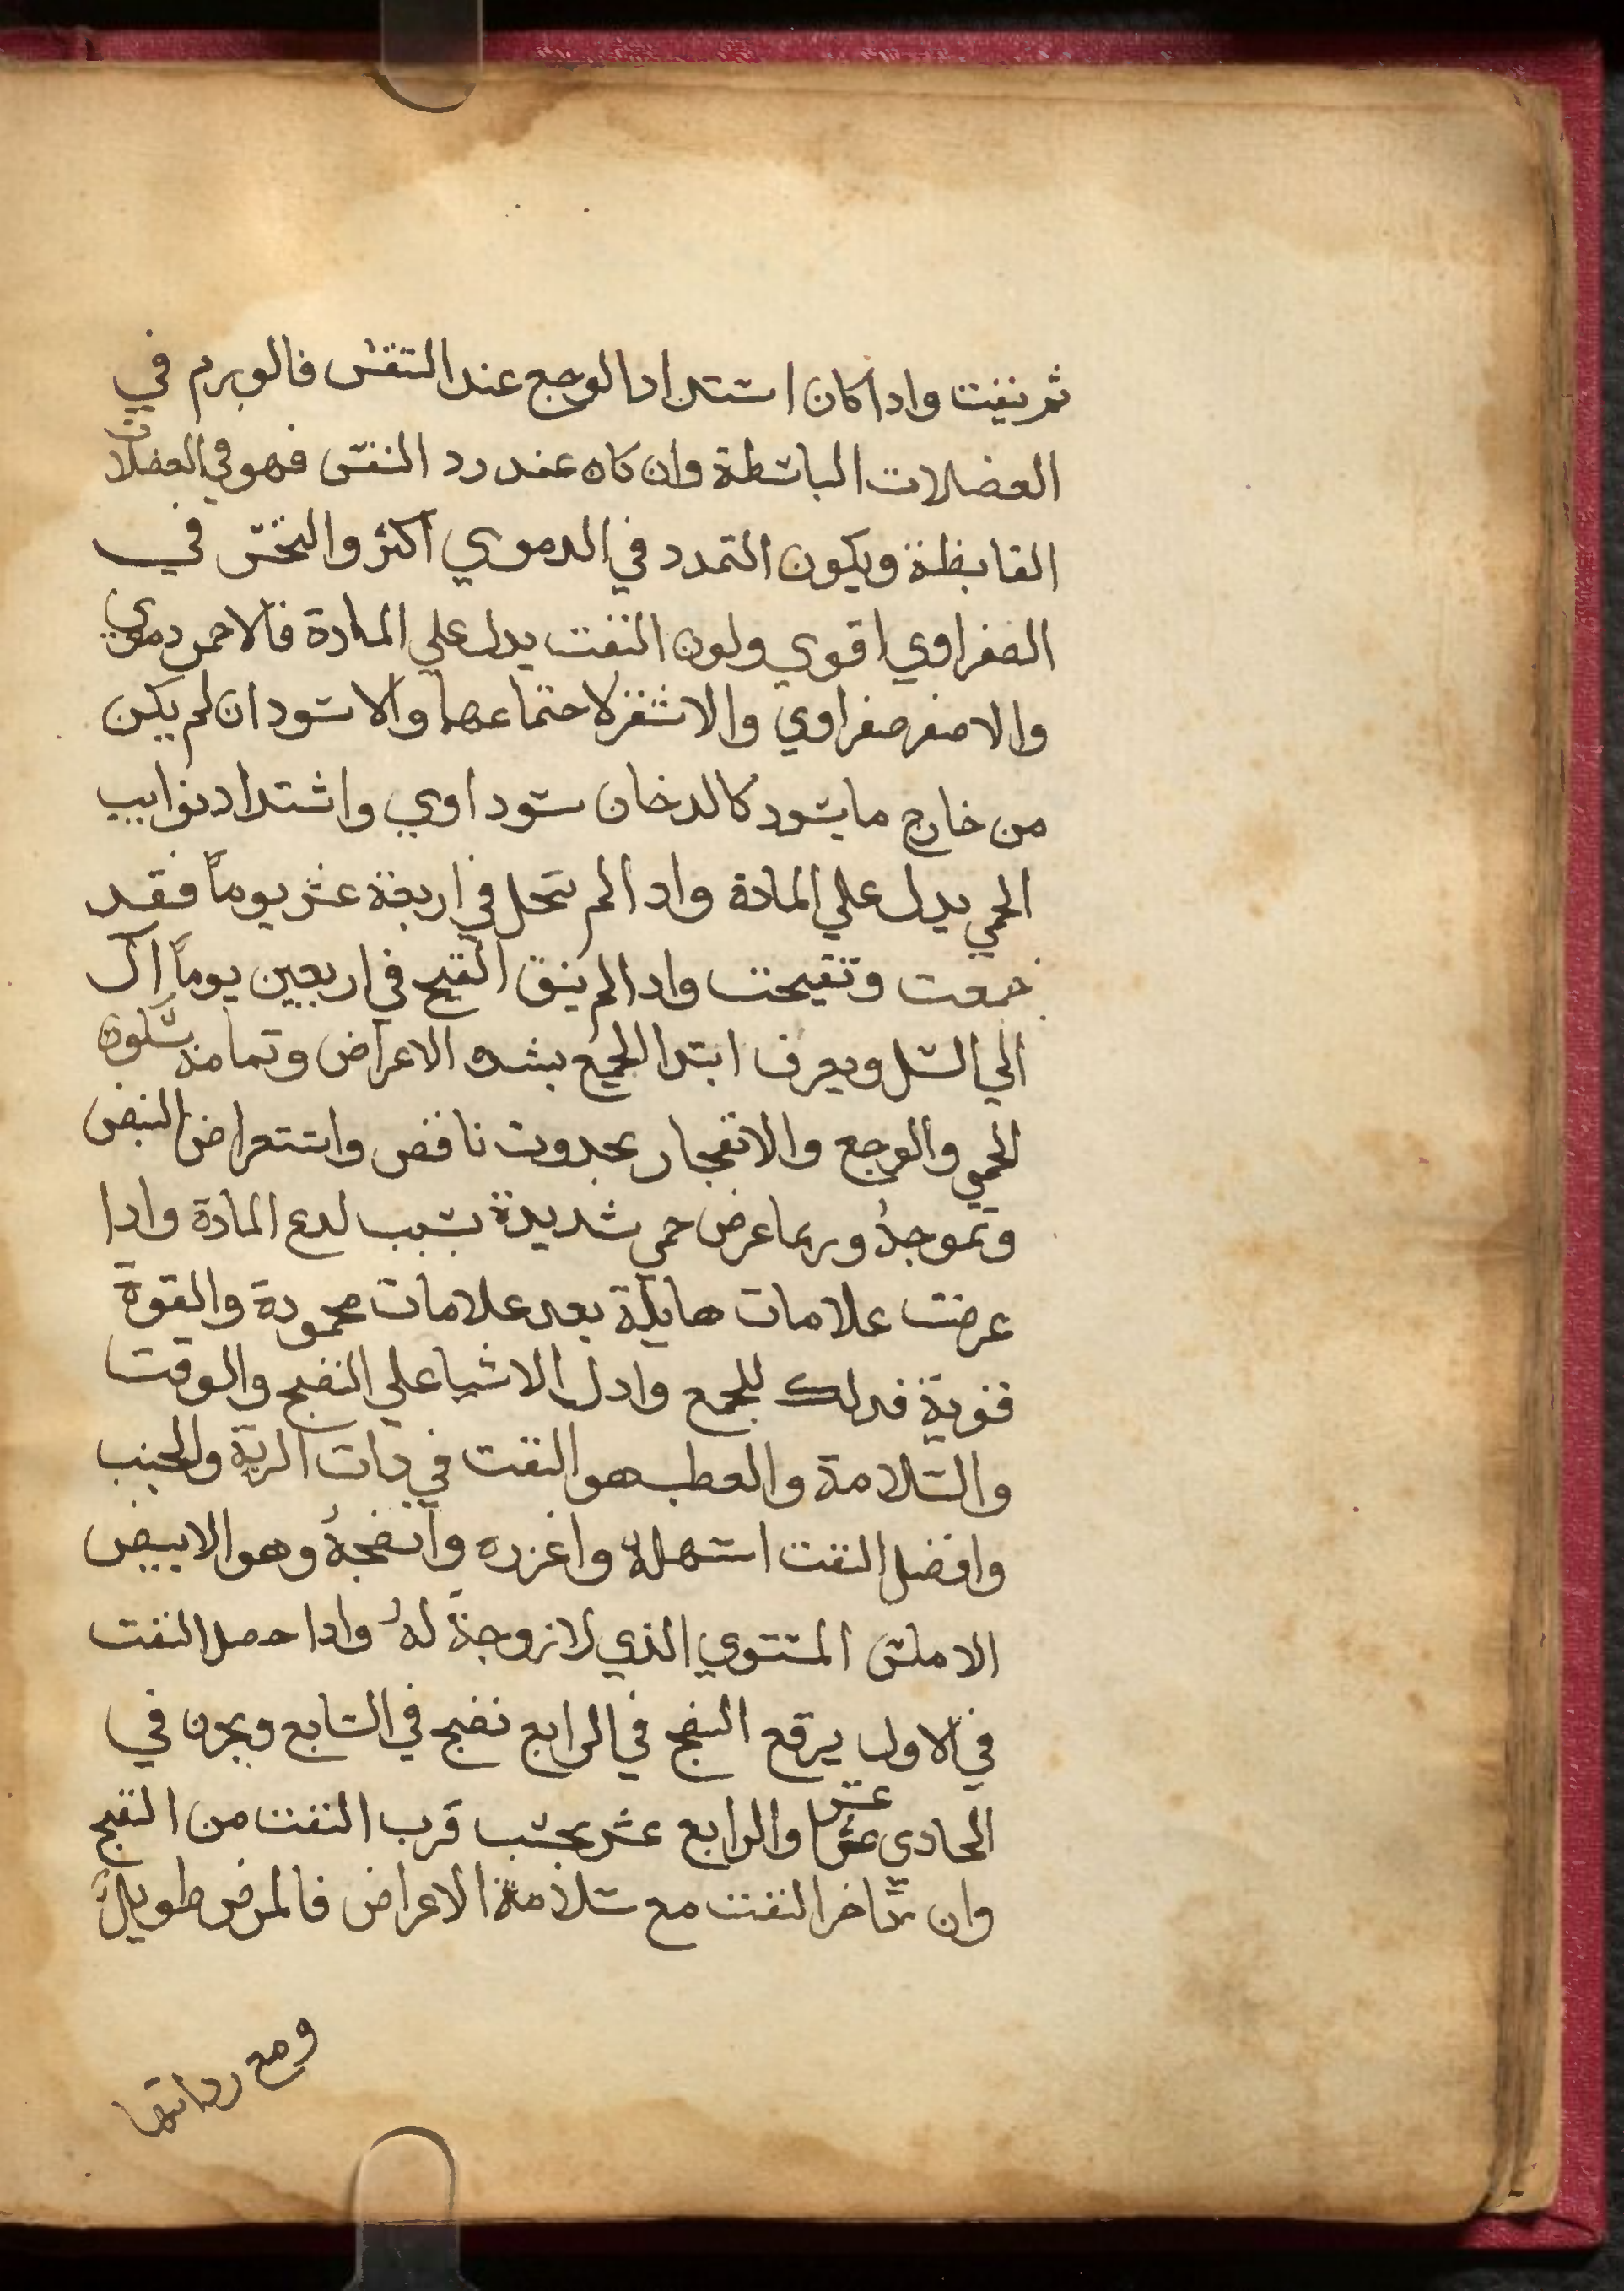 ثم ينفت وادا كان اشتداد الوجع عند التنفس فالورم في
العضلات الباسطة وان كان عند رد النفس فهو في العضلات
القابظة ويكون التمدد في الدموي اكثر والنخس في
الصفراوي اقوي ولون النفت يدل علي المادة فالاحمر دموي
والاصفر صفراوي والاشقر لاجتماعهما والاسود ان لم يكن
من خارج ما يسود كالدخان سوداوي واشتداد نوايب
الحمي يدل علي المادة وادا لم تتحل في اربعة عشر يوماً فقد
جمعت وتقيحت وادا لم ينق القيح في اربعين يوماً ال
الي السل ويعرف ابتدا الجمع بشده الاعراض وتمامة بسكون
الحمي والوجع والانفجار بحدوت نافض واستعراض النبض
وتموجهُ وربما عرض حمي شديدة بسبب لدع المادة وادا
عرضت علامات هايلة بعد علامات محمودة والقوة
قوية فدلك للجمع وادل الاشيا علي النضج والوقت
والسلامة والعطب هو النفت في دات الرية والجنب
وافضل النفت اسهلهُ واغزره وانضجهُ وهو الابيض
الاملس المستوي الذي لا لزوجة لهُ وادا حصل النفت
في الاول يرقع النضج في الرابع نضج في السابع وبحرن في
الحادي عشر والرابع عشر بحسب قرب النفت من النضج
وان تاخر النفت مع سلامة الاعراض فالمرض طويلٌ
ومع رداتها